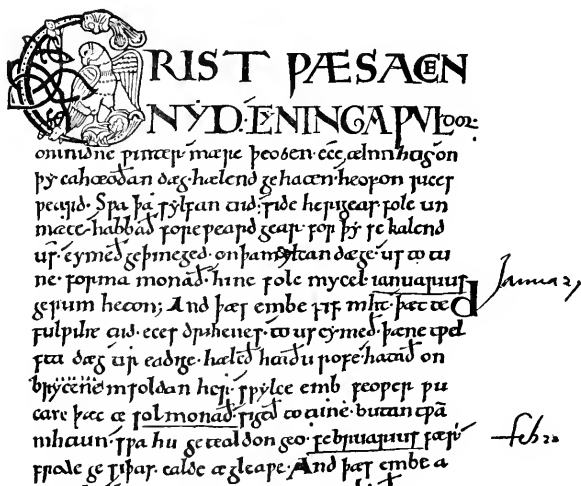 CRIST ǷÆS ACEN
NẎD·CẎNINGA ǷVLDOR·
onmidne ƿinter mære þeoden· ece ælmihtig on
þẏ eahteodan dæg· hælend gehaten· heofon rices
ƿeard· Sƿa þa sẏlfan tiid· side herigeas folc un
mæte· habbað foreƿeard gear· for þẏ se kalend
us· cẏmeð geþincged· on þam ẏlcan dæge· us to tu
ne· forma monað· hine folc mycel ianuarius
gerum heton; And þæs embe fif niht· þætte
Januay
fulƿiht tiid· eces drihtnes· to us cẏmeð· þæne tƿel
fta dæg tir eadige· hæleð headu rofe· hatað on
brẏtene in foldan her· sƿẏlce emb feoƿer ƿu
can þætte solmonað· sigeð to tune· butan tƿam
nihtum· sƿa hit getealdon geo· februarius fær·
feb
frode ge siþas· ealde ægleaƿe· And þæs embe a